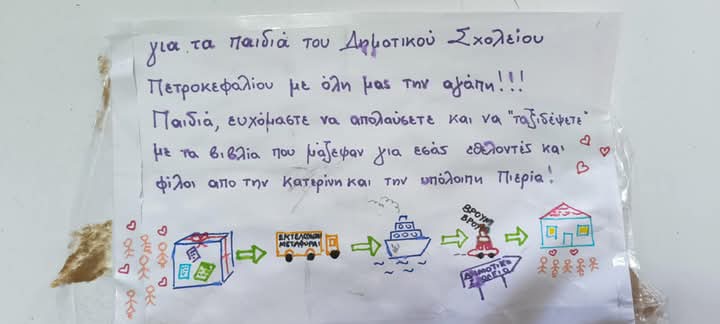 για τα παιδιά του Δημοτικού Σχολείου
Πετροκεφαλίου με όλη μας την αγάπη!!!
Παιδιά, ευχόμαστε να απολαύσετε και να "ταξιδέψετε"
με τα βιβλία που μάζεψαν για εσάς εθελοντές και
φίλοι απο την Κατερίνη και την υπόλοιπη Πιερία!
ΕΚΤΕΛΟΥΝΤΑΙ
ΜΕΤΑΦΟΡΑΙ
ΒΡΟΥΜ
ΒΡΟΥΜ
ΔΗΜΟΤΙΚΟ
ΣΧΟΛΕΙΟ